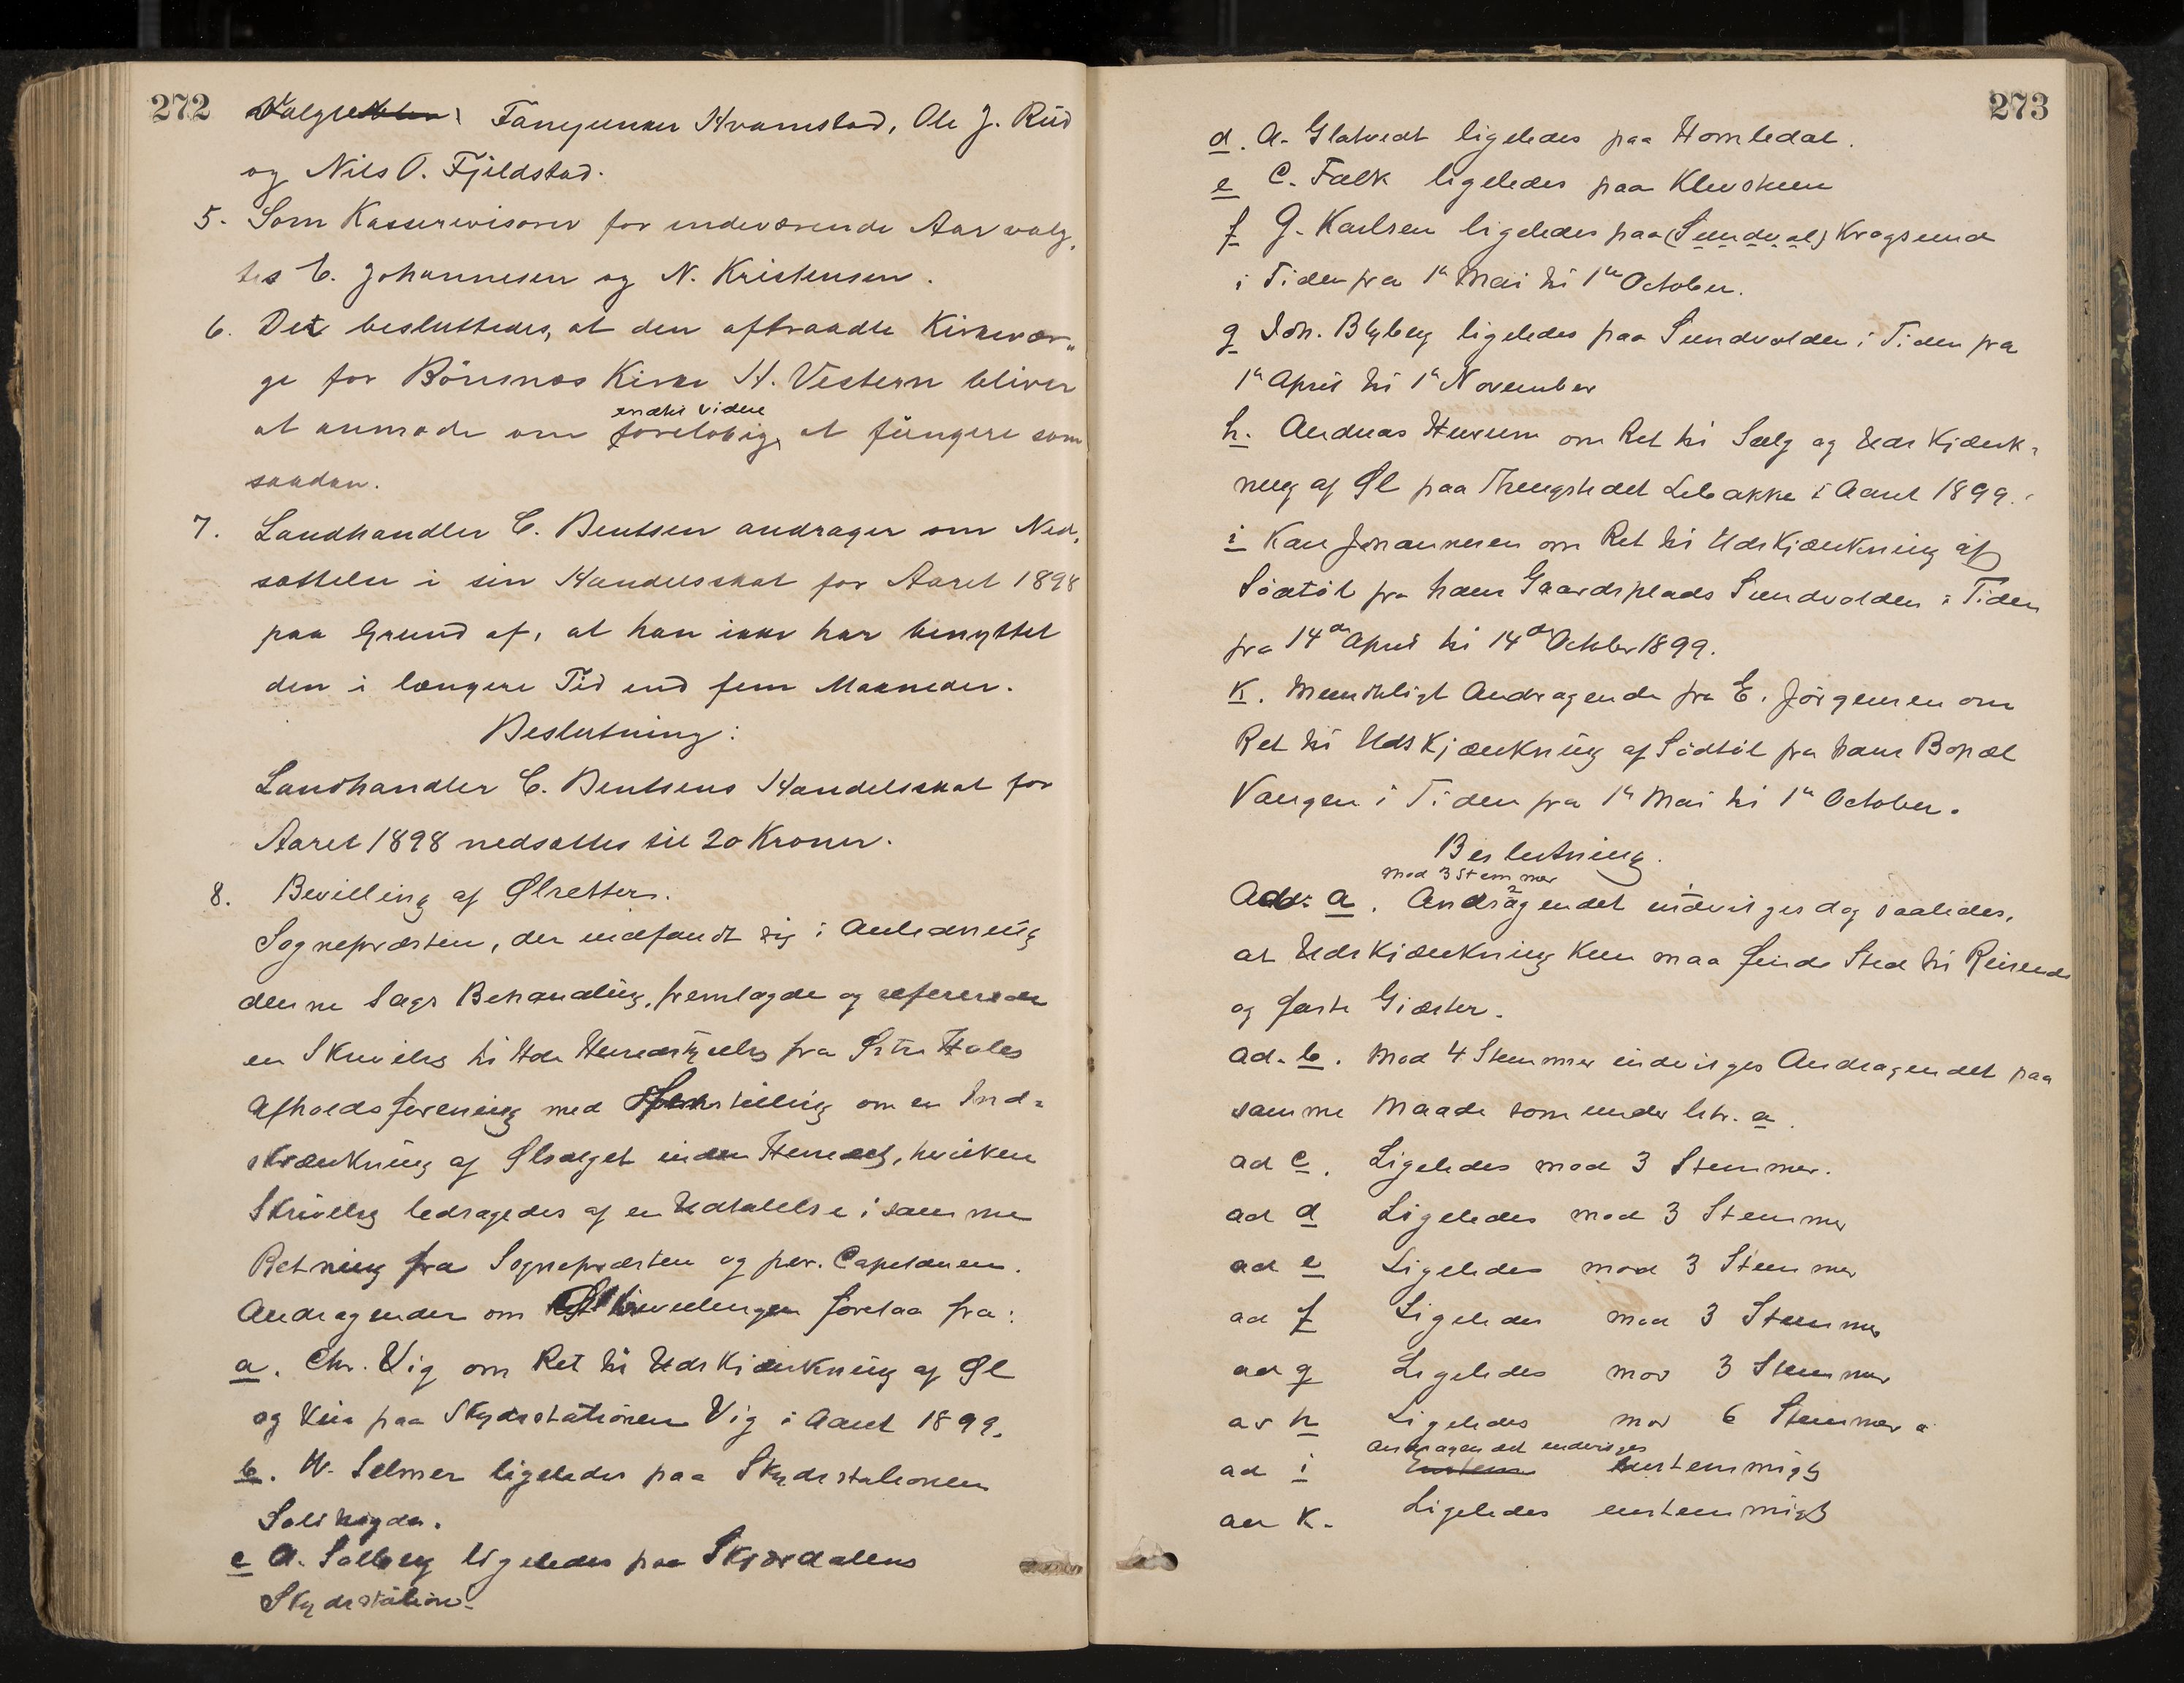 272
Valgte Fanejunker Kvamstad, Ole J. Rud
og Nils O. Fjeldstad.
5. Som Kasserevisorer for indeværende Aar valg,
tes C. Johannesen og N. Kristensen.
6. Det besluttedes, at den aftraadte Kirkevær„
ge for Bönsnæs Kirke H. Vestern bliver
indtil videre
at anmode om foreløbig at fungere som
saadan.
7. Landhandler C. Bentsen andrager om Ned,
sættelse i sin Handelsskat for Aaret 1898
paa Grund af, at han ikke har benyttet
den i længere Tid end fem Maaneder.
Beslutning:
Landhandler C. Bentsens Handelsskat for
Aaret 1898 nedsættes til 20 Kroner.
8. Bevilling af Ølretter.
Sognepræsten, der indfandt sig i Anledning
denne Sags Behandling, fremlagde og refererede
en Skrivelse til Hole Herredsstyrelse fra Hales
Afholdsforening med Forestilling om en Ind=
skrænkning af Ølsalget inden Herredet, hvilken
Skrivelse ledsagedes af en Udtalelse i samme
Retning fra Sognepræsten og per. Capelanen.
Andragender om Ølbevillinger forelaa fra:
a. Chr. Vig om Ret til Udskjænkning af Øl
og Vin paa Skydsstationen Vig i Aaret 1899.
b. W. Selmer ligeledes paa Skydsstationen
Solihøgda.
c A. Solberg ligeledes paa Skjærdalens
Skydsstation.
273
d. A. Glatvedt ligeledes paa Homledal.
e C. Falk ligeledes paa Klevstuen
f G. Karlsen ligeledes paa (Sundvol) Krogsund
i Tiden fra 1ste Mai til 1ste October.
g Joh. Blyberg ligeledes paa Sundvolden i Tiden fra
1ste April til 1ste November
h. Andreas Hurum om Ret til Salg og Udskjænk=
ning af Øl paa Thingstedet Libakke i Aaret 1899.
i Karl Johannesen om Ret til Udskjænkning af
Sødtøl fra hans Gaardsplads Sundvolden i Tiden
fra 14de April til 14de October 1899.
k. Mundtligt Andragende fra E. Jörgensen om
Ret til Udskjænkning af Sødtøl fra hans Bopæl
Vangen i Tiden fra 1ste Mai til 1ste October.
Beslutning.
mod 3 Stemmer
Ad. a. Andragendet indvilges dog saaledes,
at Udskjænkning kun maa finde Sted til Reisende
og faste Gjæster.
ad. b. Mod 4 Stemmer indvilges Andragendet paa
samme Maade som under litr. a.
ad c. Ligeledes mod 3 Stemmer.
ad d Ligeledes mod 3 Stemmer
ad e Ligeledes mod 3 Stemmer
ad f Ligeledes mod 3 Stemmer
ad g Ligeledes mod 3 Stemmer
ad h Ligeledes mod 6 Stemmer
Andragendet indvilges
ad i enstemmigt
ad k. Ligeledes enstemmigt